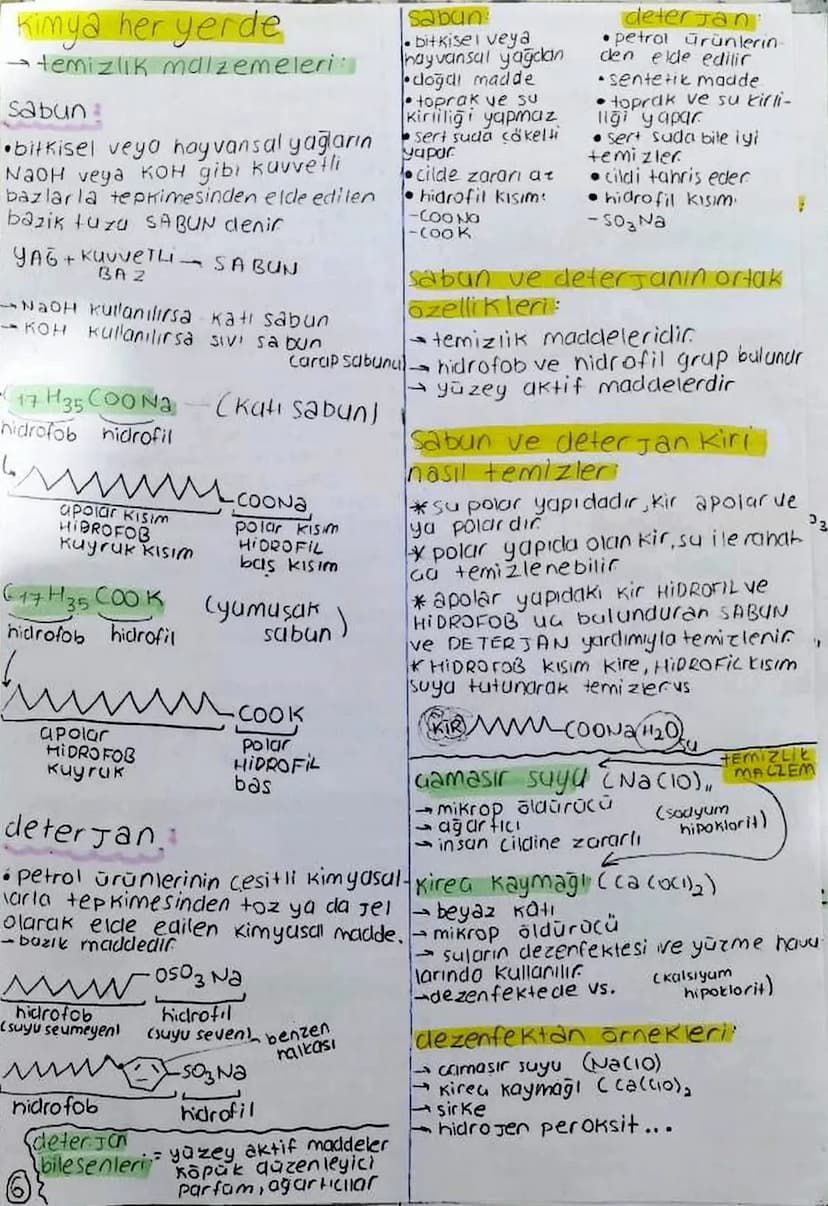 kimya her yerde
→ temizlik malzemeleri:
sabun:
• bitkisel veya hayvansal yağların
NaOH veya KOH gibi kuvvetli
bazlarla tepkimesinden elde edilen
bazik tuza SABUN denir
YAĞ + KUVVETLİ → SABUN
BAZ
→ NaOH kullanılırsa katı sabun
→ KOH kullanılırsa sıvı sabun
(arap sabunu)
C17H35COONa — (katı sabun)
hidrofob hidrofil
COONa
apolar kısım
HİDROFOB
kuyruk kısım
polar kısım
HİDROFİL
baş kısım
C17H35COOK (yumuşak
sabun)
hidrofob hidrofil
COOK
apolar
HİDROFOB
kuyruk
polar
HİDROFİL
bas
deterjan:
• petrol ürünlerinin çeşitli kimyasal-
larla tepkimesinden toz ya da jel
olarak elde edilen kimyasal madde.
→ bazik maddedir
OSO3Na
hidrofob hidrofil
(suyu sevmeyen) (suyu seven)
benzen
halkası
SO3Na
hidrofob hidrofil
deterjan
bileşenleri := yüzey aktif maddeler
köpük düzenleyici
parfüm, ağartıcılar
6
sabun:
• bitkisel veya
hayvansal yağdan
• doğal madde
• toprak ve su
kirliliği yapmaz
• sert suda çökelti
yapar
• cilde zararı az
• hidrofil kısım:
-COONa
-COOK
deterjan:
• petrol ürünlerin
den elde edilir
• sentetik madde
• toprak ve su kirli-
liği yapar
• sert suda bile iyi
temizler
• cildi tahriş eder
• hidrofil kısım:
- SO3Na
sabun ve deterjanın ortak
özellikleri:
→ temizlik maddeleridir.
→ hidrofob ve hidrofil grup bulunur
→ yüzey aktif maddelerdir
sabun ve deterjan kiri
nasıl temizler:
* su polar yapıdadır, kir apolar ve
ya polardır.
* polar yapıda olan kir, su ile rahat
ça temizlenebilir
* apolar yapıdaki kir HİDROFİL ve
HİDROFOB uç bulunduran SABUN
ve DETERJAN yardımıyla temizlenir
* HİDROFOB kısım kire, HİDROFİL kısım
suya tutunarak temizler vs
KİR COONa H2O
su
TEMİZLİK
MALZEM
çamaşır suyu (NaClO)
→ mikrop öldürücü
→ ağartıcı
→ insan cildine zararlı
(sodyum
hipoklorit)
kireç kaymağı (Ca(OCl)2)
→ beyaz katı
→ mikrop öldürücü
→ suların dezenfektesi ve yüzme havu
larında kullanılır
→ dezenfektede vs.
(kalsiyum
hipoklorit)
dezenfektan örnekleri:
→ çamaşır suyu (NaClO)
→ kireç kaymağı (Ca(ClO)2
→ sirke
→ hidrojen peroksit...